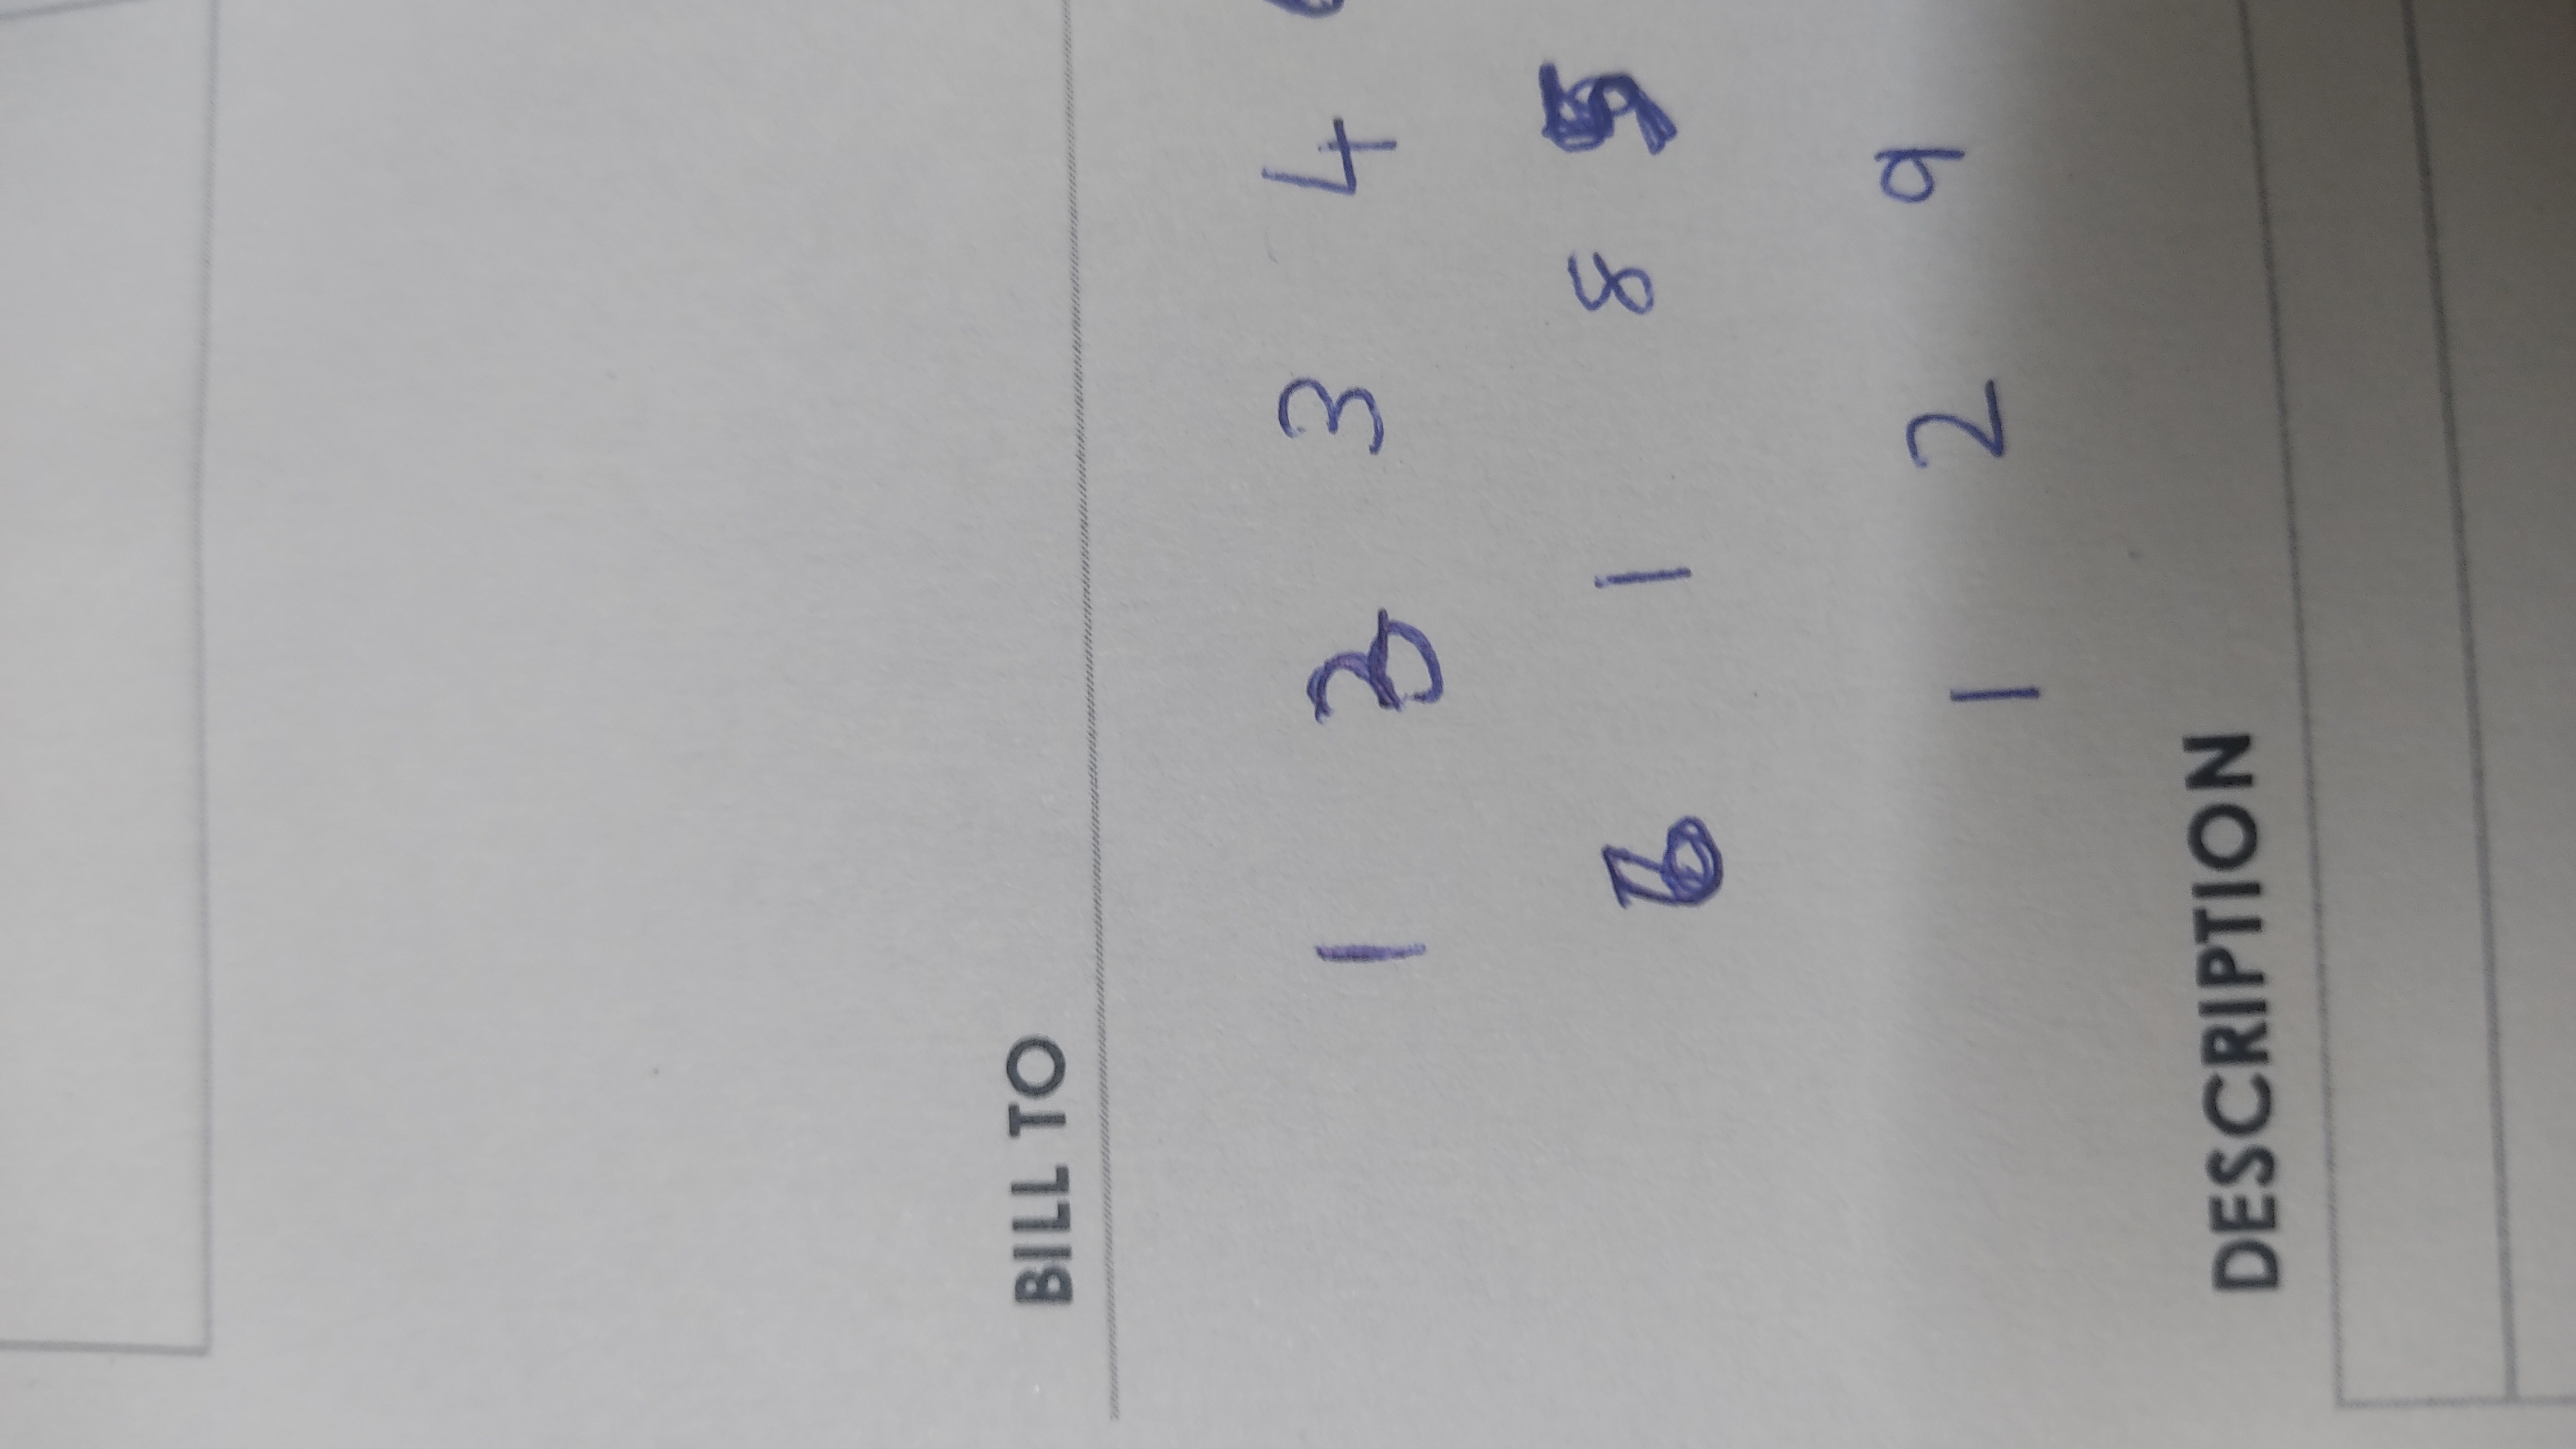 BILL TO
1 3 4
1 8
1 2 9
DESCRIPTION